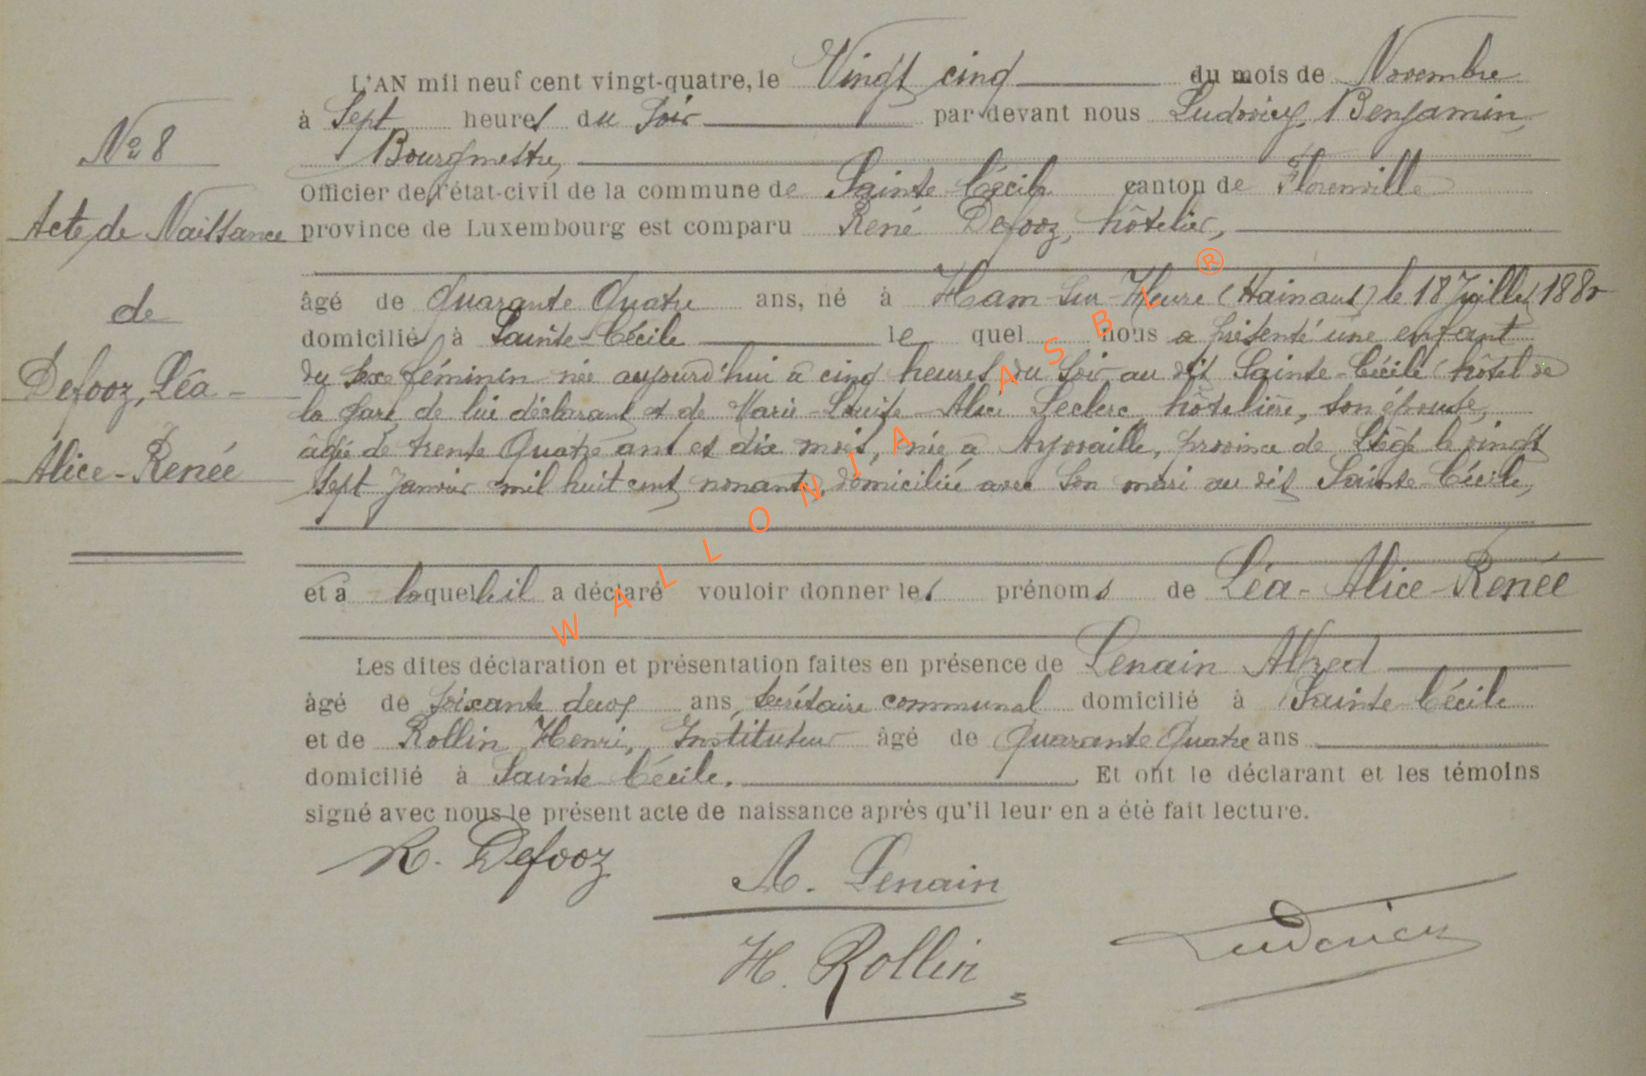 L'AN mil neuf cent vingt-quatre, le Vingt cinq du mois de Novembre
à Sept heures du soir par-devant nous Ludovicy, Benjamin,
Bourgmestre,
Officier de l'état-civil de la commune de Sainte Cécile canton de Florenville
province de Luxembourg est comparu René Defooz, hôtelier,
âgé de Quarante Quatre ans, né à Ham-sur-Heure (Hainaut) le 18 Juillet 1880
domicilié à Sainte-Cécile le quel nous a présenté une enfant
du sexe féminin née aujourd'hui à cinq heures du soir au dit Sainte-Cécile (hôtel de
la gare, de lui déclarant et de Marie-Louise-Alice Leclerc, hôtelière, son épouse,
âgée de trente Quatre ans et dix mois, née à Aywaille, province de Liège le vingt
sept Janvier mil huit cent nonante, domiciliée avec son mari au dit Sainte-Cécile,
et à laquelle il a déclaré vouloir donner les prénoms de Léa-Alice-Renée
Les dites déclaration et présentation faites en présence de Lenain Alfred
âgé de soixante deux ans, secrétaire communal domicilié à Sainte Cécile
et de Rollin Henri, Instituteur âgé de Quarante Quatre ans
domicilié à Sainte Cécile. Et ont le déclarant et les témoins
signé avec nous le présent acte de naissance après qu'il leur en a été fait lecture.
R. Defooz
A. Lenain
H. Rollin
Ludovicy
No 8
Acte de Naissance
de
Defooz, Léa-
Alice-Renée
WALLONIA ASBL ®